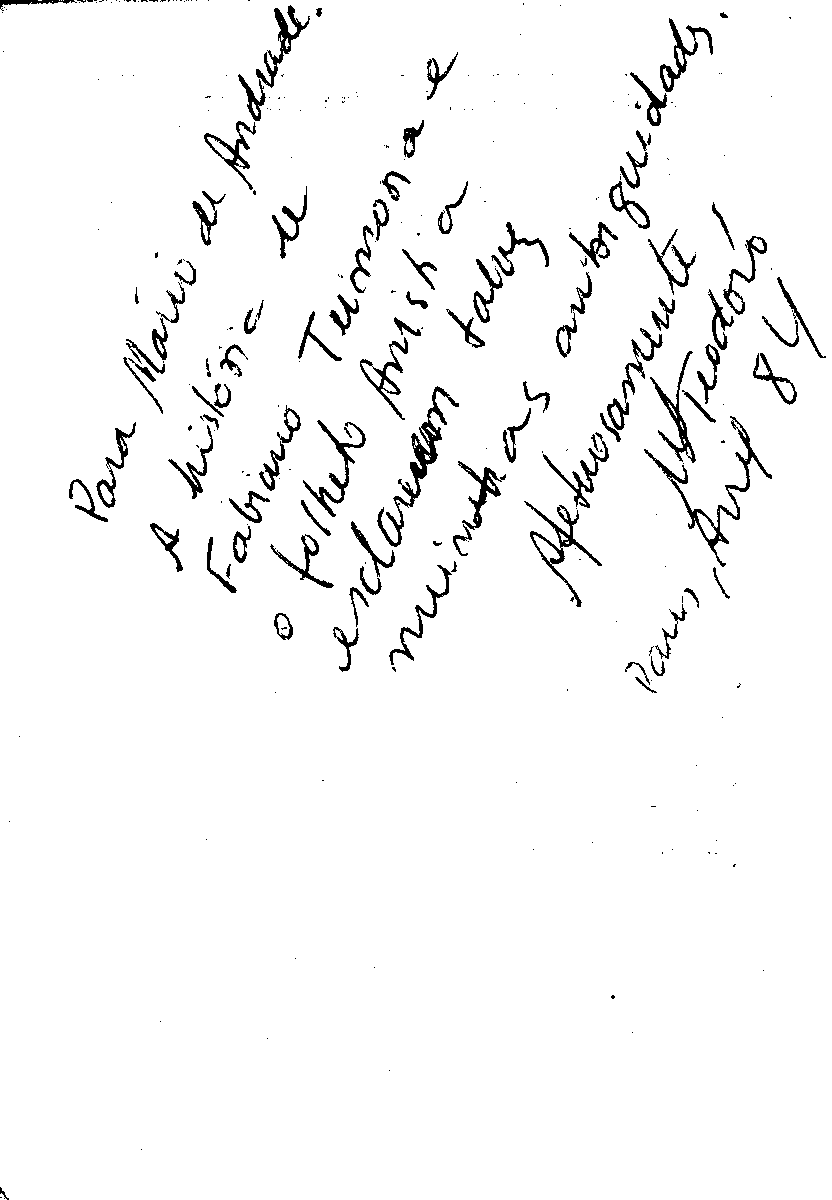 Para Mário de Andrade.
A história de
Fabiano Teimosia e
o folheto Amistia
esclarecem talvez
minhas antiguidades.
Afetuosamente
Teodoro
Paris, 84